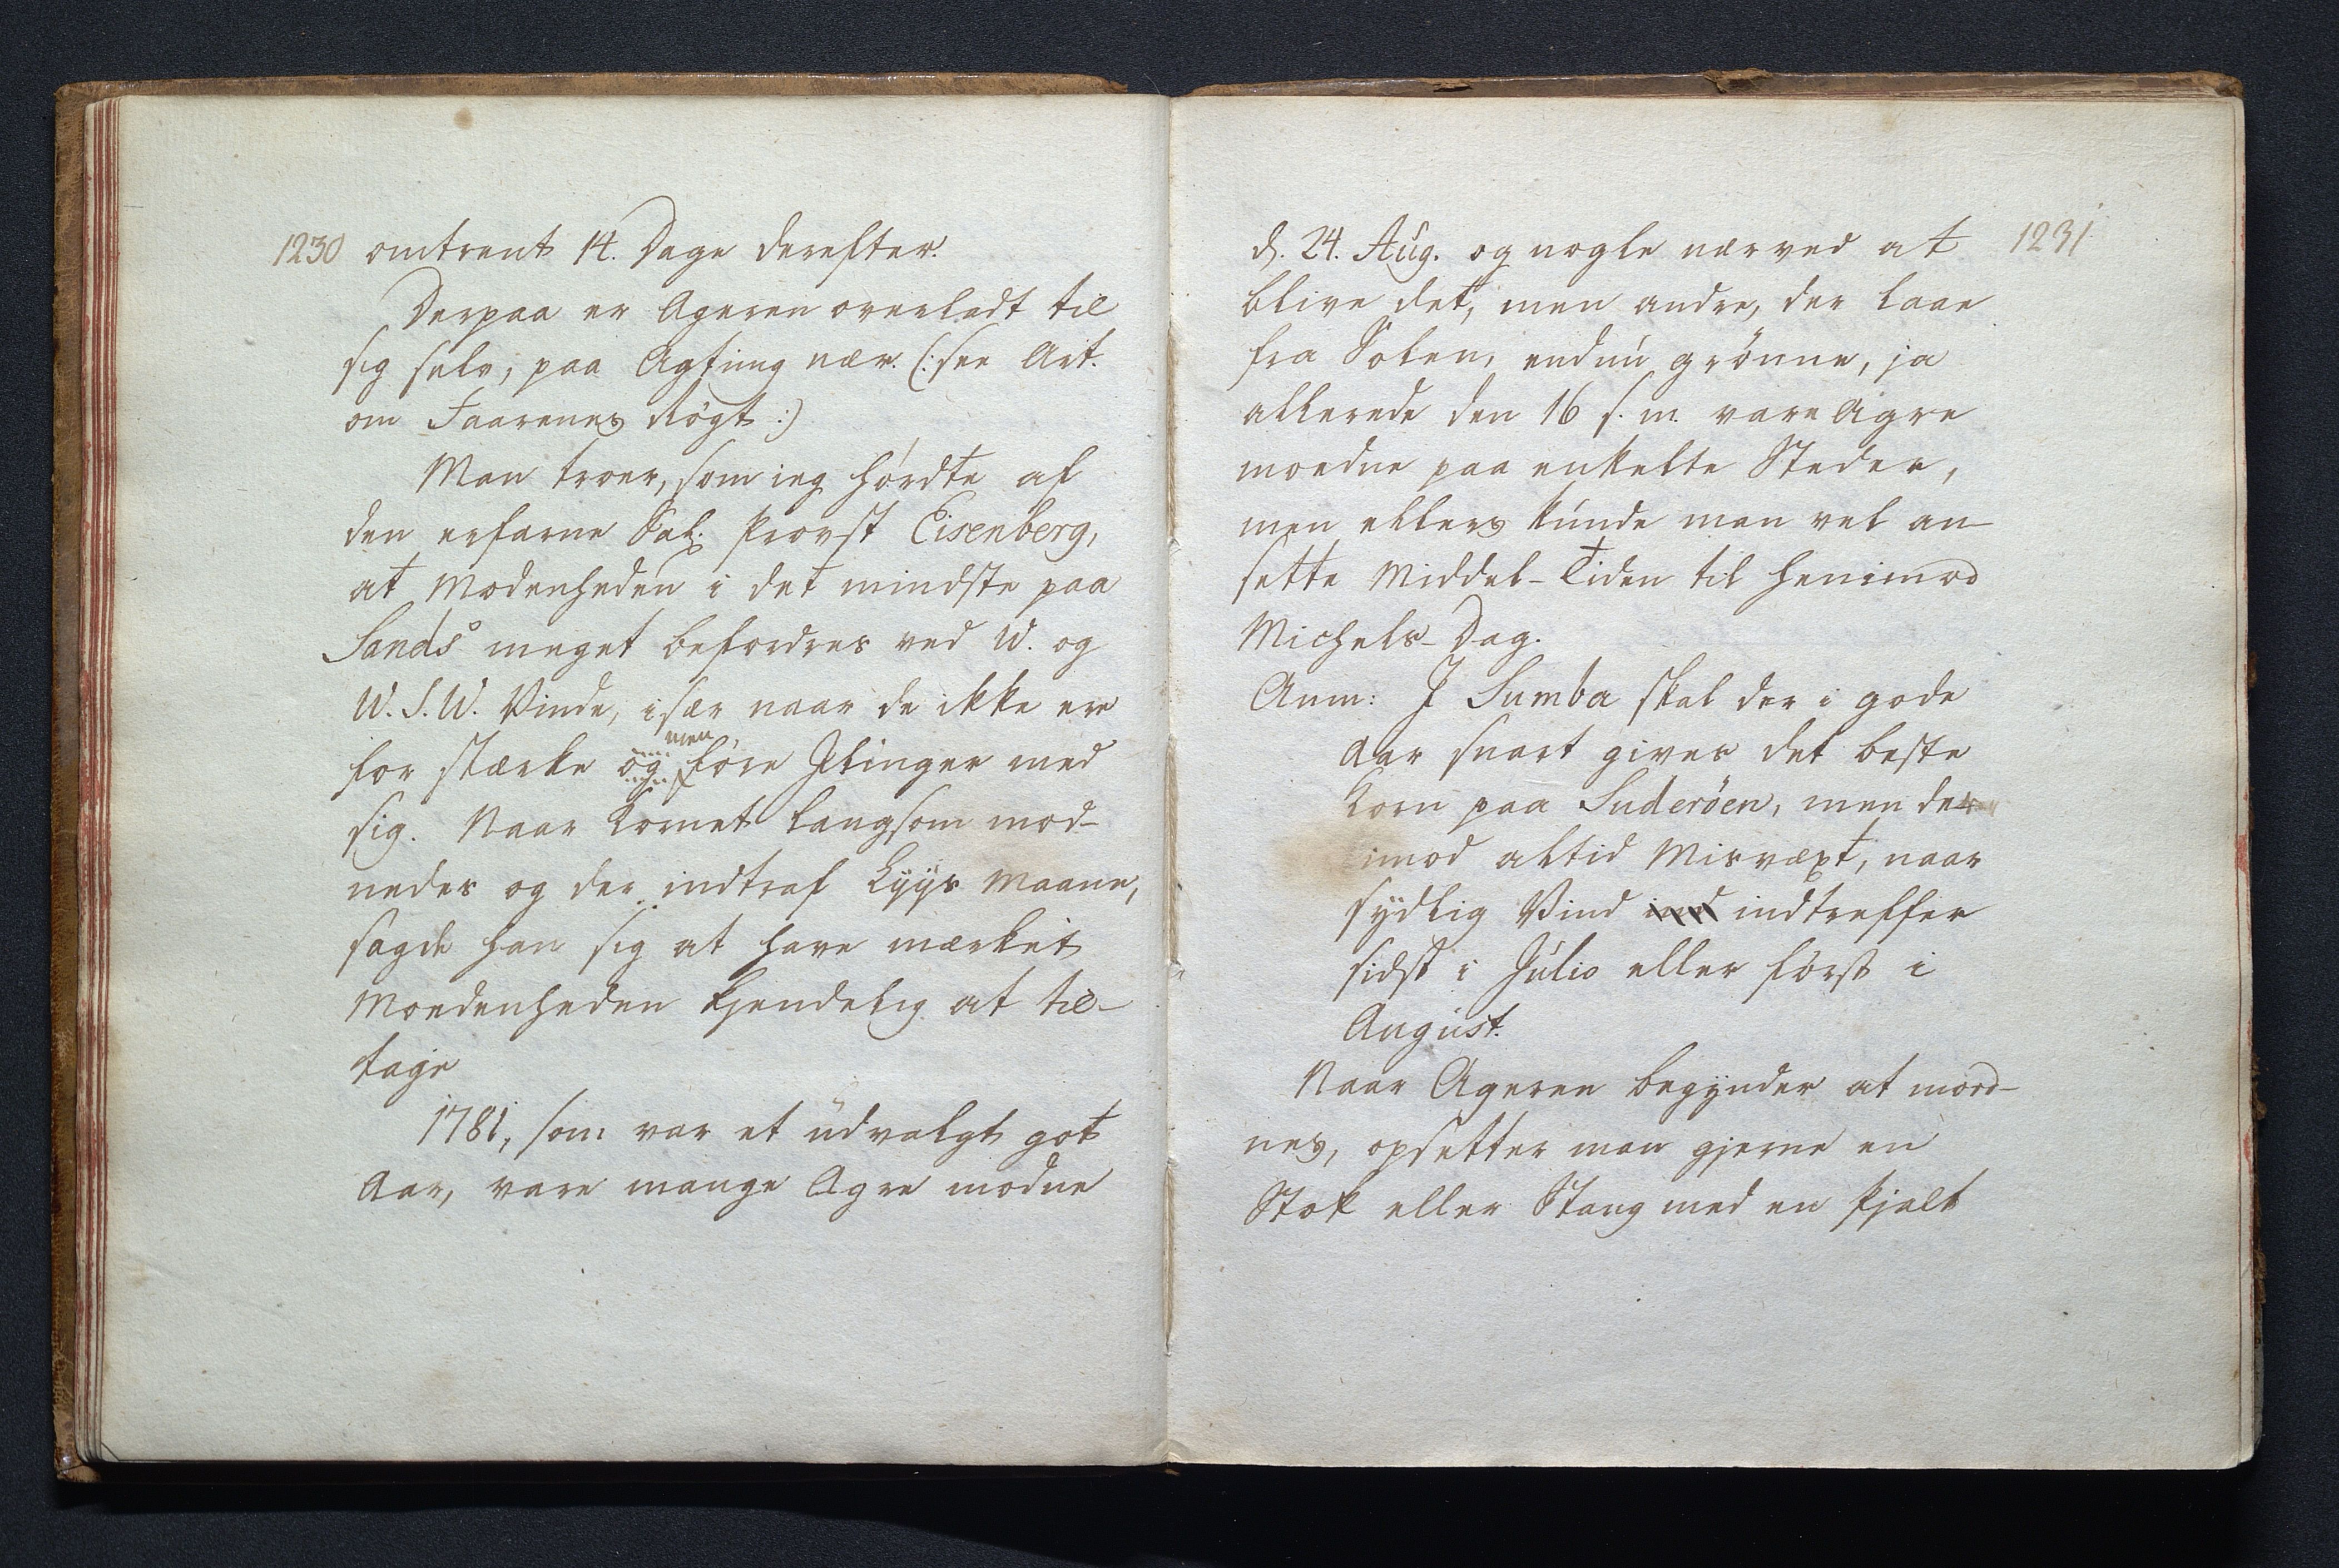 1230 omtrent 14. Dage derefter.
Derpaa er Ageren overladt til
sig selv, paa Agtning nær. (: see Art.
om Faarenes Røgt :)
Man troer, som ieg hørdte af
den erfarne Sal. Provst Eisenberg,
at Modenheden i det mindste paa
Sandø meget befordres ved W. og
W.S.W. Vinde, i sær naar de ikke ere
men
for stærke og føre Ilinger med
sig. Naar Kornet langsom mod-
nedes og der indtraf Lyys Maane,
sagde han sig at have mærket
Moedenheden kjendelig at til-
tage
1781, som var et udvalgt got
Aar, vare mange Agre modne
1231
d. 24. Aug. og nogle nær ved at
blive det, men andre, der laae
fra Solen, endnu grönne, ja
allerede den 16 s. m. vare Agre
moedne paa enkelte Steder,
men ellers kunde man vel an-
sette Middel-Tiden til henimod
Michels-Dag.
Anm: I Sumba skal der i gode
Aar snart gives det beste
Korn paa Suderöen, men der
imod altid Misvæxt, naar
sydlig Vind ind indtreffer
sidst i Julio eller først i
August.
Naar Ageren begynder at mod-
nes, opsetter man gjerne en
Stok eller Stang med en Pjalt